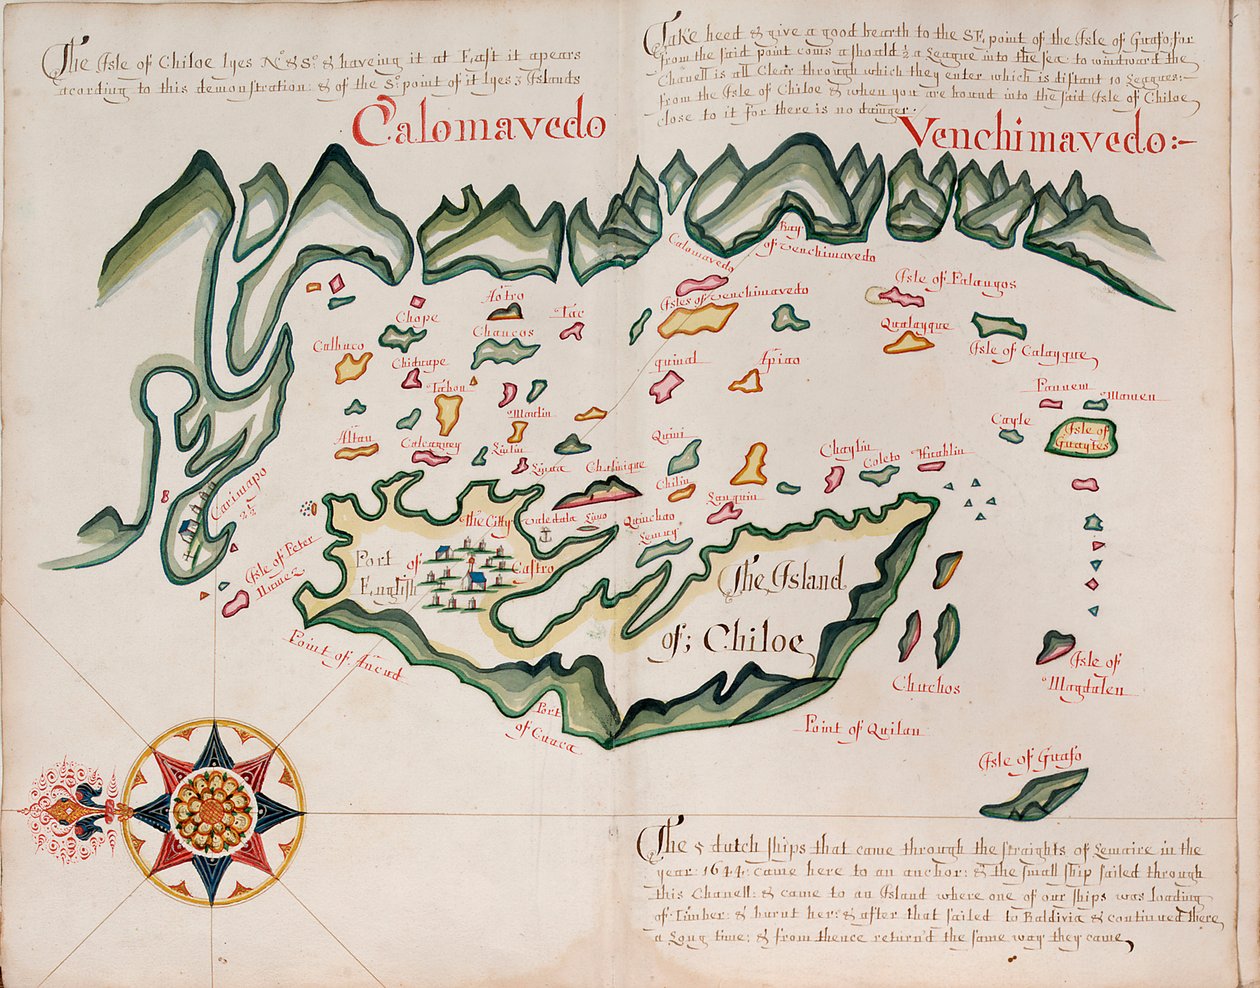 The Isle of Chiloe lyes No & So: & haveing it at East it apears
acording to this demonstration: & of the So: point of it lyes 3 Islands
Take heed & give a good bearth to the SE, point of the Isle of Guafo; for
from the said point coms a shoald ½ a League into the sea to windward the
Chanell is all Clear through which they enter which is distant 10 Leagues:~
from the Isle of Chiloe & when you are bound into the said Isle of Chiloe
close to it for there is no danger
Calomavedo
Venchimavedo:~
Bay
of Venchimavedo
Calomavedo
Isles of Venchimavedo
Isle of Palangos
Aotro
Chope
Tac
Chaucos
Qualayque
Isle of Calayque
Calbuco
Chiduape
quinal
Apiao
Tabou
Pannem
Mamen
Maulin
Cayle
Isle of
Guaytes
Altau
Calcaguey
Liulin
Quini
Chaylin
Coleto
Huablin
Linua
Chalinique
Chilin
Lanquin
Carimapo
2½
the Citty
of
Castro
valedata
Liuo
Quinchao
Lemuy
Isle of Peter
Nunez
Port
English
The Island
of; Chiloe
Point of Ancud
Port
of Cuaca
Chuchos
Isle of
Magdalen
Point of Quilan
Isle of Guafo
The 5 dutch ships that came through the straights of Lemaire in the
year: 1644: came here to an anchor: & the small ship sailed through
this Chanell: & came to an Island where one of our ships was loading
of Timber: & burnt her: & after that sailed to Baldivia & continued there
a Long time; & from thence return'd the same way they came,